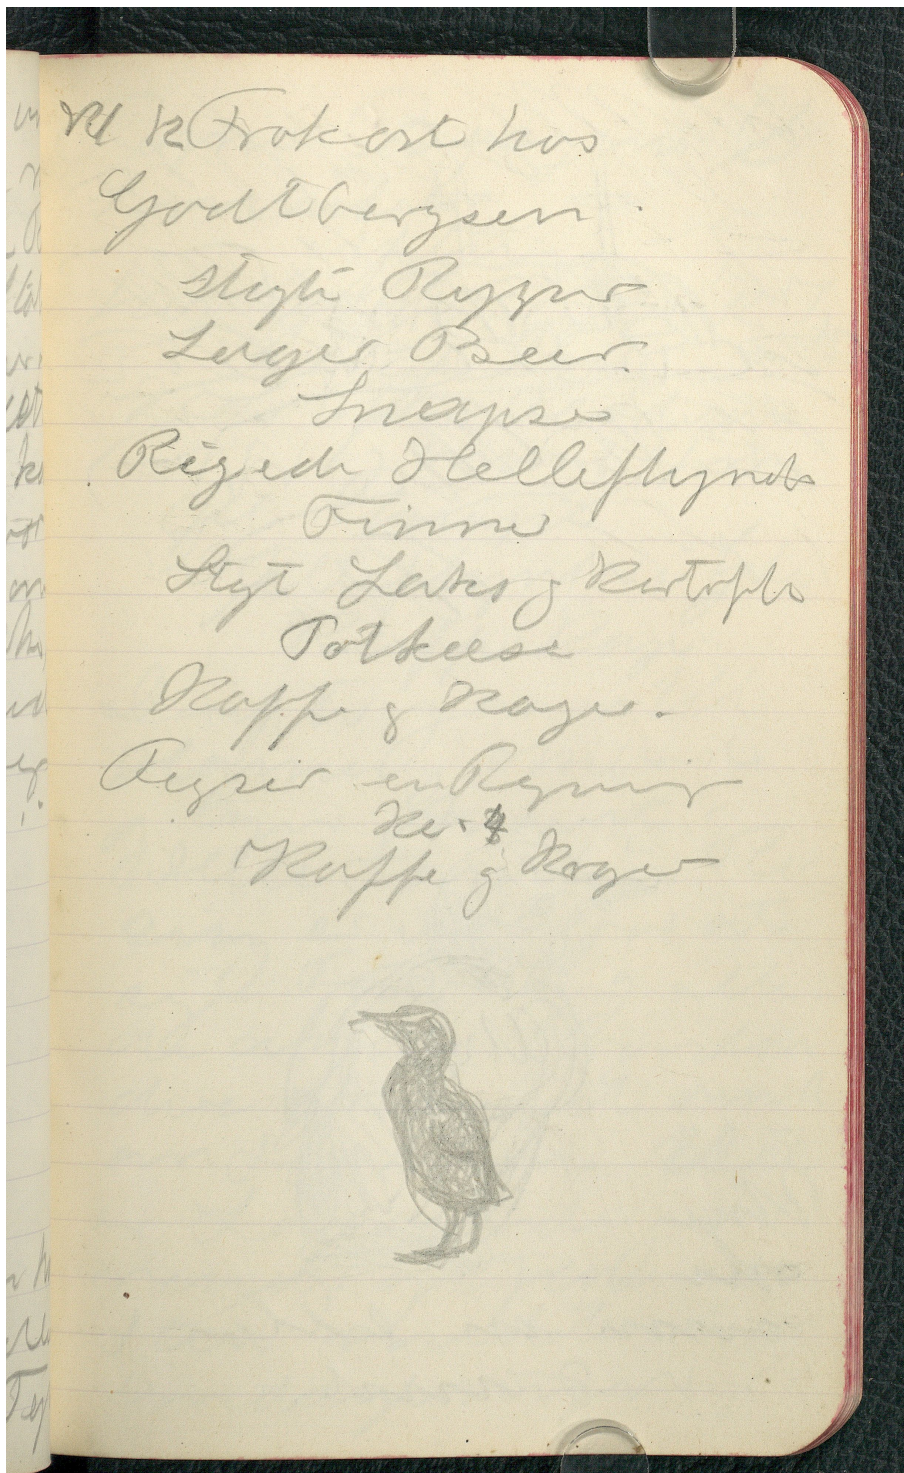 Kl 12 Frokost hos
Godtbergsen.
stegte Ryper
Lager Beer.
Snapse
Rögede Helleflynder
Finner
Stegt Laks og Kartofler
Potkäse
Kaffe og Kager.
en
Kl. 4
Kaffe og Kager